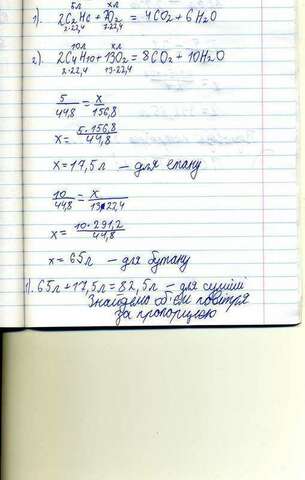 5л хл
1). 2C2H6 + 7O2 = 4CO2 + 6H2O
2·22,4 7·22,4
10л хл
2). 2C4H10 + 13O2 = 8CO2 + 10H2O
2·22,4 13·22,4
5/44,8 = x/156,8
x = 5·156,8/44,8
x = 17,5л – для етану
10/44,8 = x/13·22,4
x = 10·291,2/44,8
x = 65л – для бутану
1). 65л + 17,5л = 82,5л – для суміші
Знайдемо об'єм повітря
за пропорцією